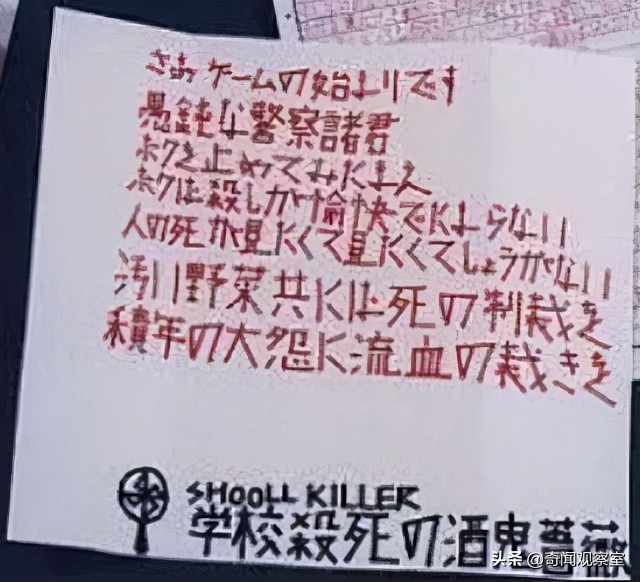 さあ ゲームの始まりです
愚鈍な警察諸君
ボクを止めてみたまえ
ボクは殺しが愉快でたまらない
人の死が見たくて見たくてしょうがない
汚い野菜共には死の制裁を
積年の大怨に流血の裁きを
SHOOLL KILLER
学校殺死の酒鬼薔薇
头条 @奇闻观察室